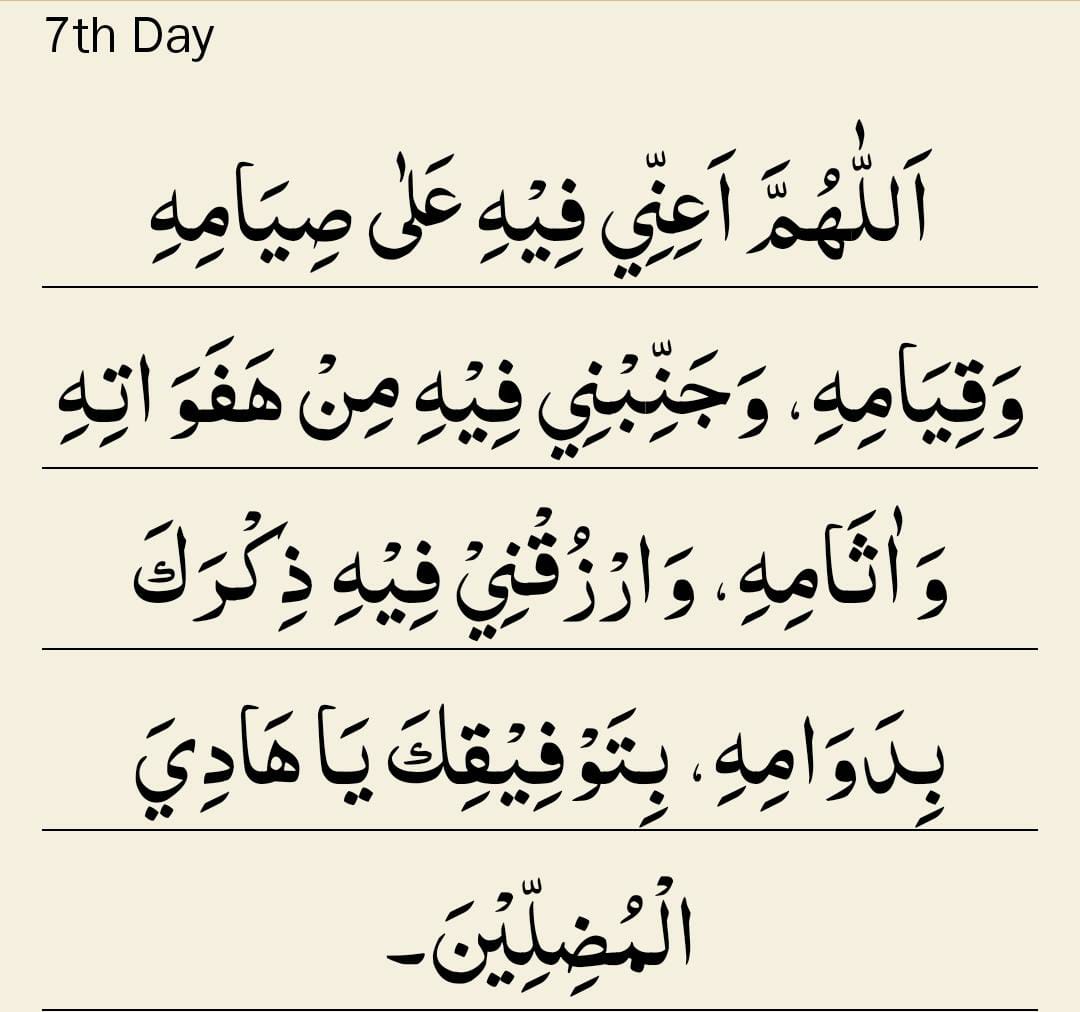 7th Day
اَللّٰهُمَّ اَعِنِّي فِيْهِ عَلٰى صِيَامِهِ
وَقِيَامِهِ، وَجَنِّبْنِي فِيْهِ مِنْ هَفَوَاتِهِ
وَاٰثَامِهِ، وَارْزُقْنِيْ فِيْهِ ذِكْرَكَ
بِدَوَامِهِ، بِتَوْفِيْقِكَ يَا هَادِيَ
الْمُضِلِّيْنَ۔